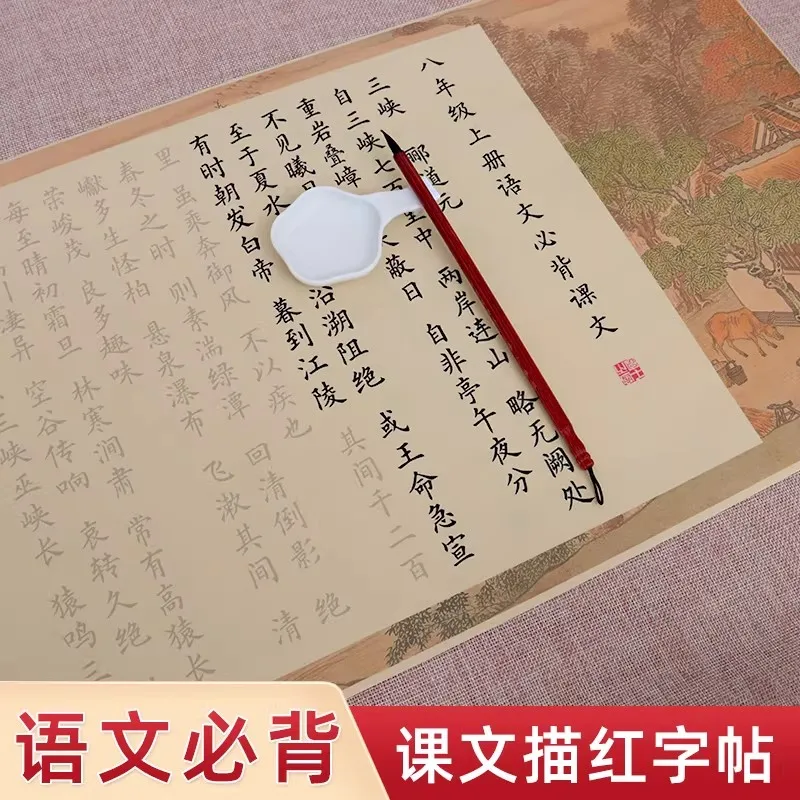 八年级上册语文必背课文
三峡 郦道元
自三峡七百里中 两岸连山 略无阙处
重岩叠嶂 蔽日 自非亭午夜分
不见曦
至于夏水 沿溯阻绝 或王命急宣
有时朝发白帝 暮到江陵 其间千二百
里 虽乘奔御风 不以疾也
春冬之时 则素湍绿潭 回清倒影 绝
巘多生怪柏 悬泉瀑布 飞漱其间 清
荣峻茂 良多趣味
每至晴初霜旦 林寒涧肃 常有高猿长
凄异 空谷传响 哀转久绝
三峡巫峡长 猿鸣三
语文必背
课文描红字帖